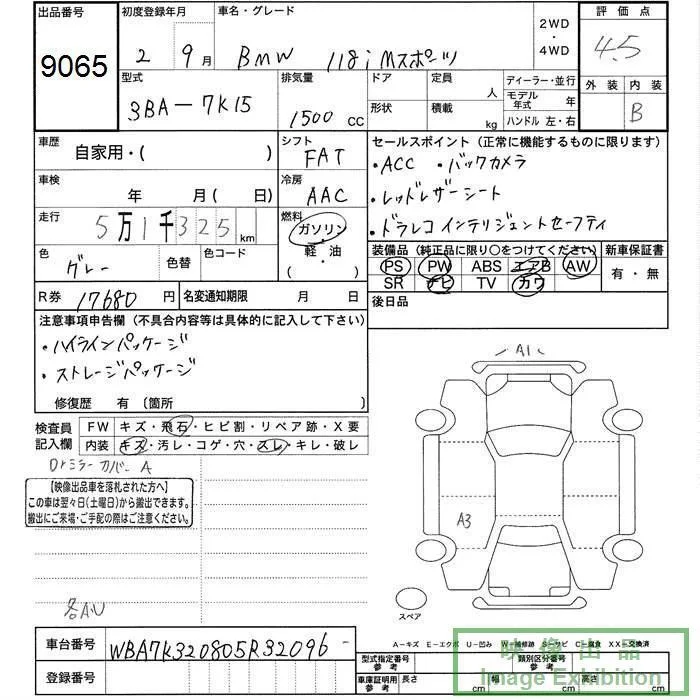 出品番号 初度登録年月 車名・グレード 2WD・4WD 評価点
9065 2 9月 BMW 118i Mスポーツ 4.5
型式 排気量 ドア 定員 人 ディーラー・並行 外装 内装
3BA-7K15 1500 CC 形状 積載 kg モデル年式 年 B
ハンドル 左・右
車歴 自家用・( ) シフト FAT セールスポイント (正常に機能するものに限ります)
・ACC ・バックカメラ
車検 年 月 ( 日) 冷房 AAC ・レッドレザーシート
走行 5万1千325km 燃料 ガソリン・軽・油・( ) ・ドラレコ インテリジェントセーフティ
色 グレー 色替 色コード 装備品 (純正品に限り○をつけてください) 新車保証書
PS PW ABS エアB AW 有・無
SR ナビ TV カワ
R券 17680円 名変通知期限 月 日 後日品
注意事項申告欄 (不具合内容等は具体的に記入して下さい)
・ハイラインパッケージ
・ストレージパッケージ
修復歴 有 (箇所 )
A1
検査員記入欄 FW キズ・飛石・ヒビ割・リペア跡・X要
内装 キズ・汚レ・コゲ・穴・スレ・キレ・破レ
Drミラーカバー A
【映像出品車を落札された方へ】
この車は翌々日(土曜日)から搬出できます。
搬出にご来場・ご手配の際はご注意ください。
A3
各AU
スペア
車台番号 WBA7K320805R32096
登録番号
A-キズ E-エクボ U-凹み W-補修跡 S-サビ C-腐食 XX-交換済
型式指定番号 参考 類別区分番号 参考
車庫証明用 参考 長さ cm 幅 cm 高さ cm
映像出品
Image Exhibition